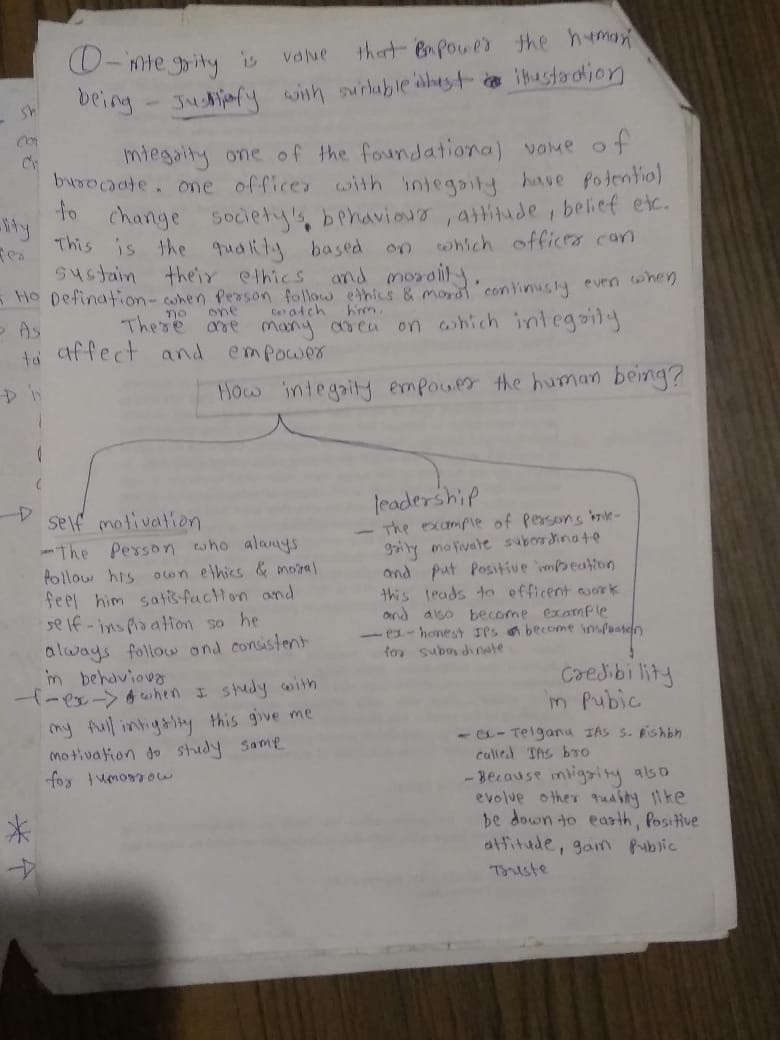 ① - integrity is value that empower the human
being - Justify with suitable illustration
integrity one of the foundational value of
burocrate. one officer with integrity have potential
to change society's, behaviour, attitude, belief etc.
This is the quality based on which officer can
sustain their ethics and morality.
Defination - when person follow ethics & moral continusly even when
no one watch him.
There are many area on which integrity
affect and empower
How integrity empower the human being?
self motivation
- The person who always
follow his own ethics & moral
feel him satisfaction and
self-inspiration so he
always follow and consistent
in behaviour
- ex -> when I study with
my full intigrity this give me
motivation to study same
for tumorrow
leadership
- The example of persons inte-
grity motivate subordinate
and put positive impreation
this leads to efficent work
and also become example
- ex - honest IPS become inspiraton
for subordinate
Credibility
in Pubic
- ex - Telgana IAS S.
called IAS bro
- Because intigrity also
evolve other quality like
be down to earth, Positive
attitude, gain public
Truste
sh
co
lity
Ho
As
to